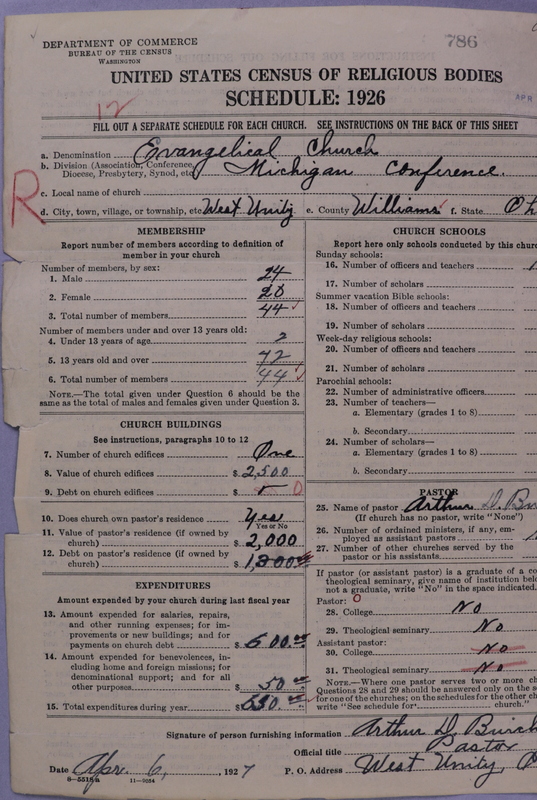 786
DEPARTMENT OF COMMERCE
BUREAU OF THE CENSUS
WASHINGTON
UNITED STATES CENSUS OF RELIGIOUS BODIES
SCHEDULE: 1926
APR
12
FILL OUT A SEPARATE SCHEDULE FOR EACH CHURCH. SEE INSTRUCTIONS ON THE BACK OF THIS SHEET
a. Denomination Evangelical Church
b. Division (Association, Conference, Diocese, Presbytery, Synod, etc Michigan Conference.
R
c. Local name of church
d. City, town, village, or township, etc West Unity e. County Williams f. State
MEMBERSHIP
Report number of members according to definition of
member in your church
Number of members, by sex:
1. Male 24
2. Female 20
3. Total number of members 44
Number of members under and over 13 years old:
4. Under 13 years of age 2
5. 13 years old and over 42
6. Total number of members 44
NOTE.—The total given under Question 6 should be
same as the total of males and females given under Question 3.
CHURCH BUILDINGS
See instructions, paragraphs 10 to 12
7. Number of church edifices One
8. Value of church edifices $ 2,500
9. Debt on church edifices $ 0
10. Does church own pastor's residence Yes
Yes or No
11. Value of pastor's residence (if owned by
church) $ 2,000
12. Debt on pastor's residence (if owned by
church) $
EXPENDITURES
Amount expended by your church during last fiscal year
13. Amount expended for salaries, repairs,
and other running expenses; for im-
provements or new buildings; and for
payments on church debt $
14. Amount expended for benevolences, in-
cluding home and foreign missions; for
denominational support; and for all
other purposes $ 50.00
15. Total expenditures during year $
CHURCH SCHOOLS
Report here only schools conducted by this
Sunday schools:
16. Number of officers and teachers
17. Number of scholars
Summer vacation Bible schools:
18. Number of officers and teachers
19. Number of scholars
Week-day religious schools:
20. Number of officers and teachers
21. Number of scholars
Parochial schools:
22. Number of administrative officers
23. Number of teachers—
a. Elementary (grades 1 to 8)
b. Secondary
24. Number of scholars—
a. Elementary (grades 1 to 8)
b. Secondary
PASTOR
25. Name of pastor Arthur D.
(If church has no pastor, write "None")
26. Number of ordained ministers, if any, em-
ployed as assistant pastors
27. Number of other churches served by the
pastor or his assistants
If pastor (or assistant pastor) is a graduate of a
theological seminary, give name of institution
not a graduate, write "No" in the space indicated.
Pastor: O
28. College No
29. Theological seminary No
Assistant pastor:
30. College No
31. Theological seminary No
NOTE.—Where one pastor serves two or more
Questions 28 and 29 should be answered only on the
for one of the churches; on the schedules for the other
write "See schedule for church."
Signature of person furnishing information Arthur D.
Official title Pastor
Date Apr. 6, 1927 P. O. Address West Unity,
8—5518a 11—9054